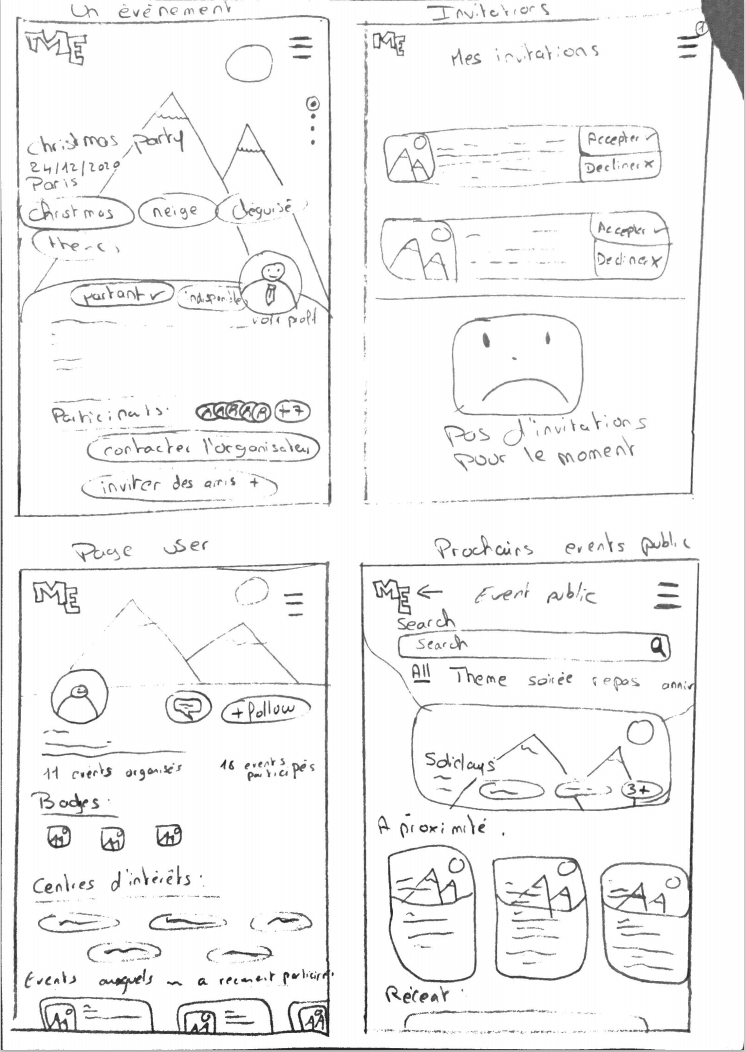 Un événement
ME
Christmas party
24/12/2020
Paris
christmas
neige
déguisé
partant ✓
indisponible
voir profil
Participants:
+7
contacter l'organisateur
inviter des amis +
Invitations
ME
Mes invitations
Accepter ✓
Decliner x
Accepter ✓
Decliner x
Pas d'invitations
pour le moment
Page user
ME
+ follow
11 events organisés
16 events
participés
Badges:
Centres d'intérêts:
Events auxquels
Prochains events public
ME ← Event public
Search
Search
All Theme soirée repas anniv
Solidays
3+
A proximité.
Récent: